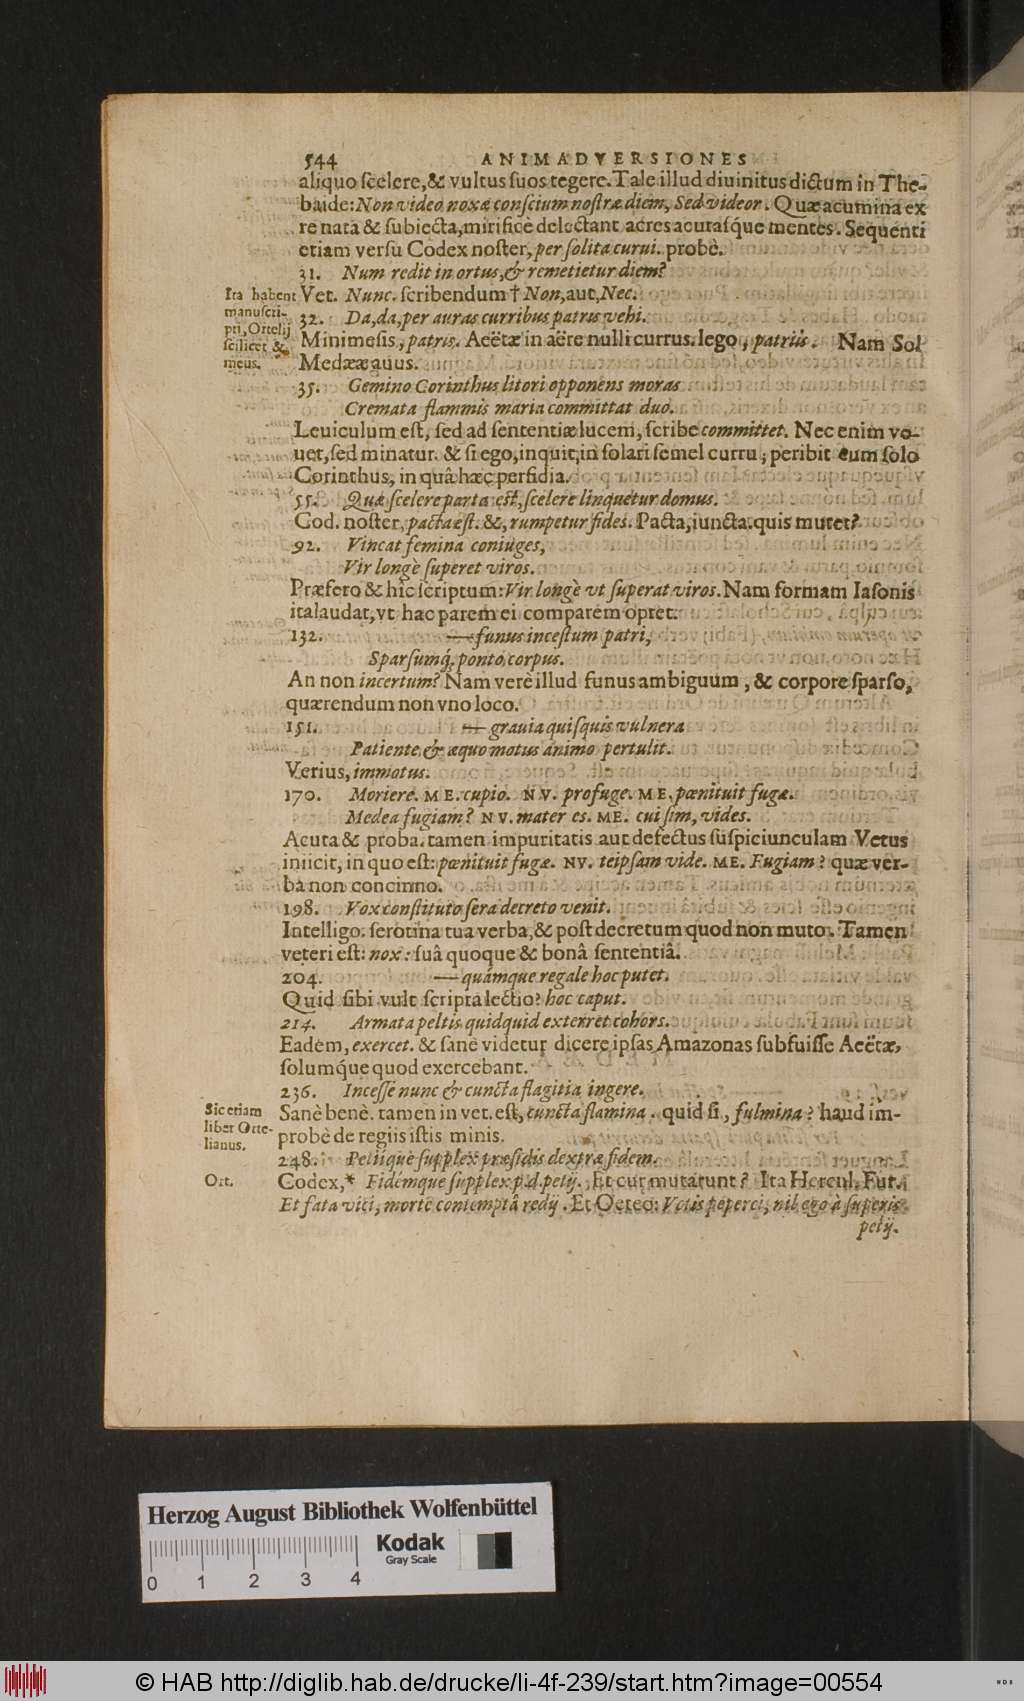 544 ANIMADVERSIONES
aliquo ſcelere, & vultus ſuos tegere. Tale illud diuinitus dictum in The-
baide: Non video noxæ conſcium noſtræ diem, Sed videor. Quæ acumina ex
re nata & ſubiecta, mirificè delectant acres acutaſq́ue mentes. Sequenti
etiam verſu Codex noſter, per ſolita curui. probè.
31. Num redit in ortus, & remetietur diem?
Ita habent
manuſcri-
pti, Ortelij
ſcilicet &
meus.
Vet. Nunc. ſcribendum † Non, aut, Nec.
32. Da, da, per auras curribus patris vehi.
Minimeſis, patris. Aeëtæ in aëre nulli currus. lego, patriis. Nam Sol
Medææ auus.
35. Gemino Corinthus litori opponens moras
Cremata flammis maria committat duo.
Leuiculum eſt, ſed ad ſententiæ lucem, ſcribe committet. Nec enim vo-
uet, ſed minatur. & ſi ego, inquit, in ſolari ſemel curru, peribit cum ſolo
Corinthus, in quâ hæc perfidia.
55. Quæ ſcelere parta eſt, ſcelere linquetur domus.
Cod. noſter, pacta eſt. &, rumpetur fides. Pacta, iuncta. quis mutet?
92. Vincat femina coniuges,
Vir longè ſuperet viros.
Præfero & hîc ſcriptum: Vir longè vt ſuperat viros. Nam formam Iaſonis
ita laudat, vt hac parem ei comparem optet.
132. — funus inceſtum patri,
Sparſumq́. ponto corpus.
An non incertum? Nam verè illud funus ambiguum, & corpore ſparſo,
quærendum non vno loco.
151. — grauia quiſquis vulnera
Patiente & æquo motus animo pertulit.
Verius, immotus.
170. Moriere. ME. cupio. NV. profuge. ME. pœnituit fugæ.
Medea fugiam? NV. mater es. ME. cui ſim, vides.
Acuta & proba. tamen impuritatis aut defectus ſuſpiciunculam Vetus
iniicit, in quo eſt: pœnituit fugæ. NV. teipſam vide. ME. Fugiam? quæ ver-
ba non concinno.
198. Vox conſtituto ſera decreto venit.
Intelligo: ſerotina tua verba, & poſt decretum quod non muto. Tamen
veteri eſt: nox: ſuâ quoque & bonâ ſententiâ.
204. — quámque regale hoc putet.
Quid ſibi vult ſcripta lectio? hoc caput.
214. Armata peltis quidquid exterret cohors.
Eadem, exercet. & ſanè videtur dicere ipſas Amazonas ſubfuiſſe Aeëtæ,
ſolumq́ue quod exercebant.
236. Inceſſe nunc & cuncta flagitia ingere.
Sic etiam
liber Orte-
lianus.
Sanè benè. tamen in vet. eſt, cuncta flamina. quid ſi, fulmina? haud im-
probè de regiis iſtis minis.
248. Petiique ſupplex præſidis dextræ fidem.
Ort.
Codex, * Fidémque ſupplex p. d. petij. Et cur mutarunt? Ita Hercul. Fur.
Et fata vici, morte contemptâ redij. Et Oeteo: Votis peperci, nil ego à ſuperis
petij.
Herzog August Bibliothek Wolfenbüttel
Kodak
Gray Scale
0 1 2 3 4
© HAB http://diglib.hab.de/drucke/li-4f-239/start.htm?image=00554